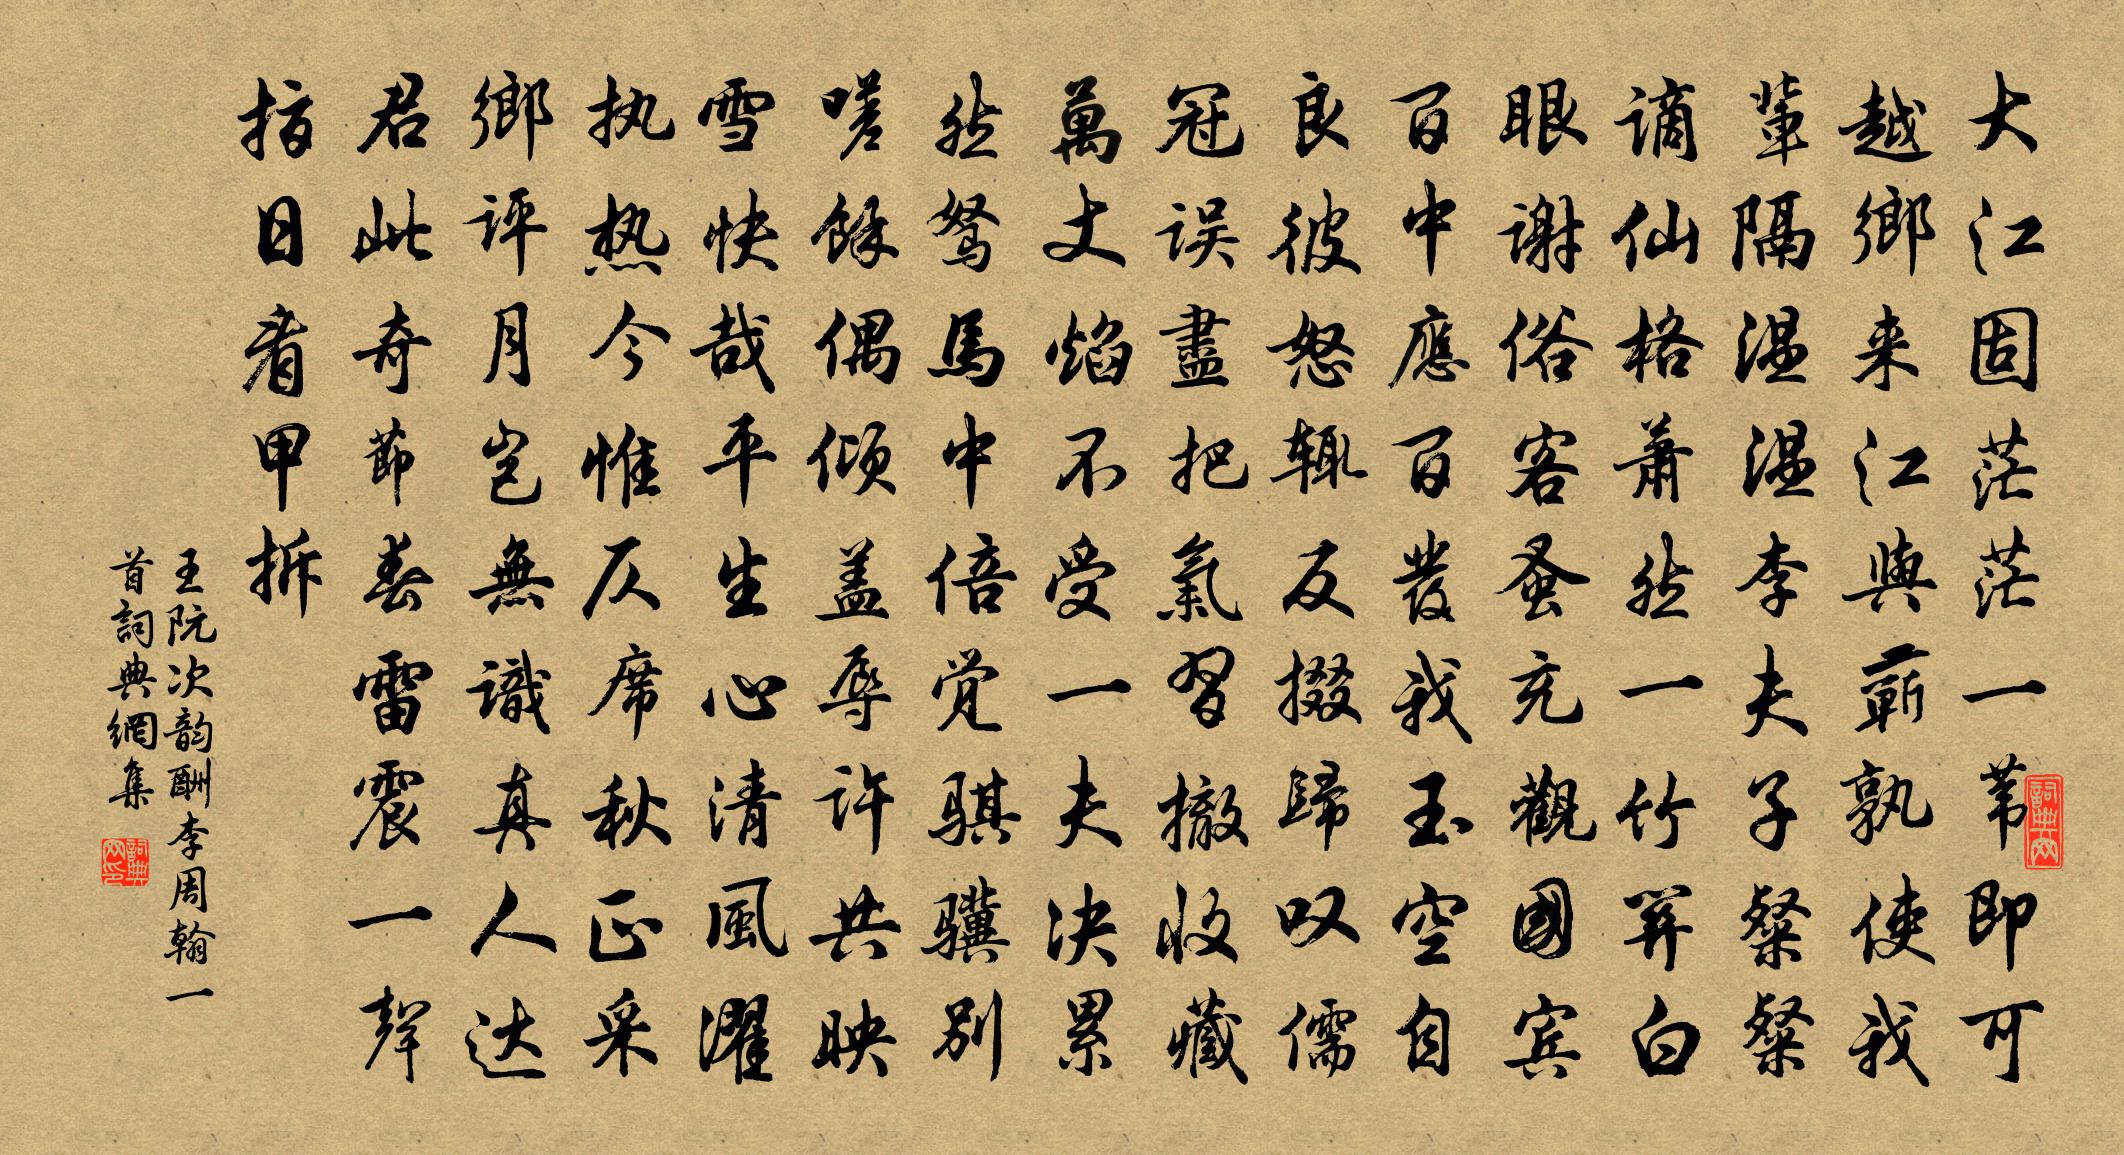 大江固茫茫一苇即可
越鄉来江與蘄孰使我
輩隔温温李夫子粲粲
谪仙格萧然一竹笄白
眼谢俗客蚤充觀國宾
百中應百發我玉空自
良彼怒辄反掇歸叹儒
冠误盡把氣習撤收藏
萬丈焰不受一夫决累
然驽馬中倍觉骐骥别
嗟餘偶倾盖辱许共映
雪快哉平生心清風濯
执热今惟仄席秋正采
鄉评月岂無識真人达
君此奇節春雷震一聲
指日看甲拆
王阮次韵酬李周翰一
首詞典網集
詞典网
詞典网印